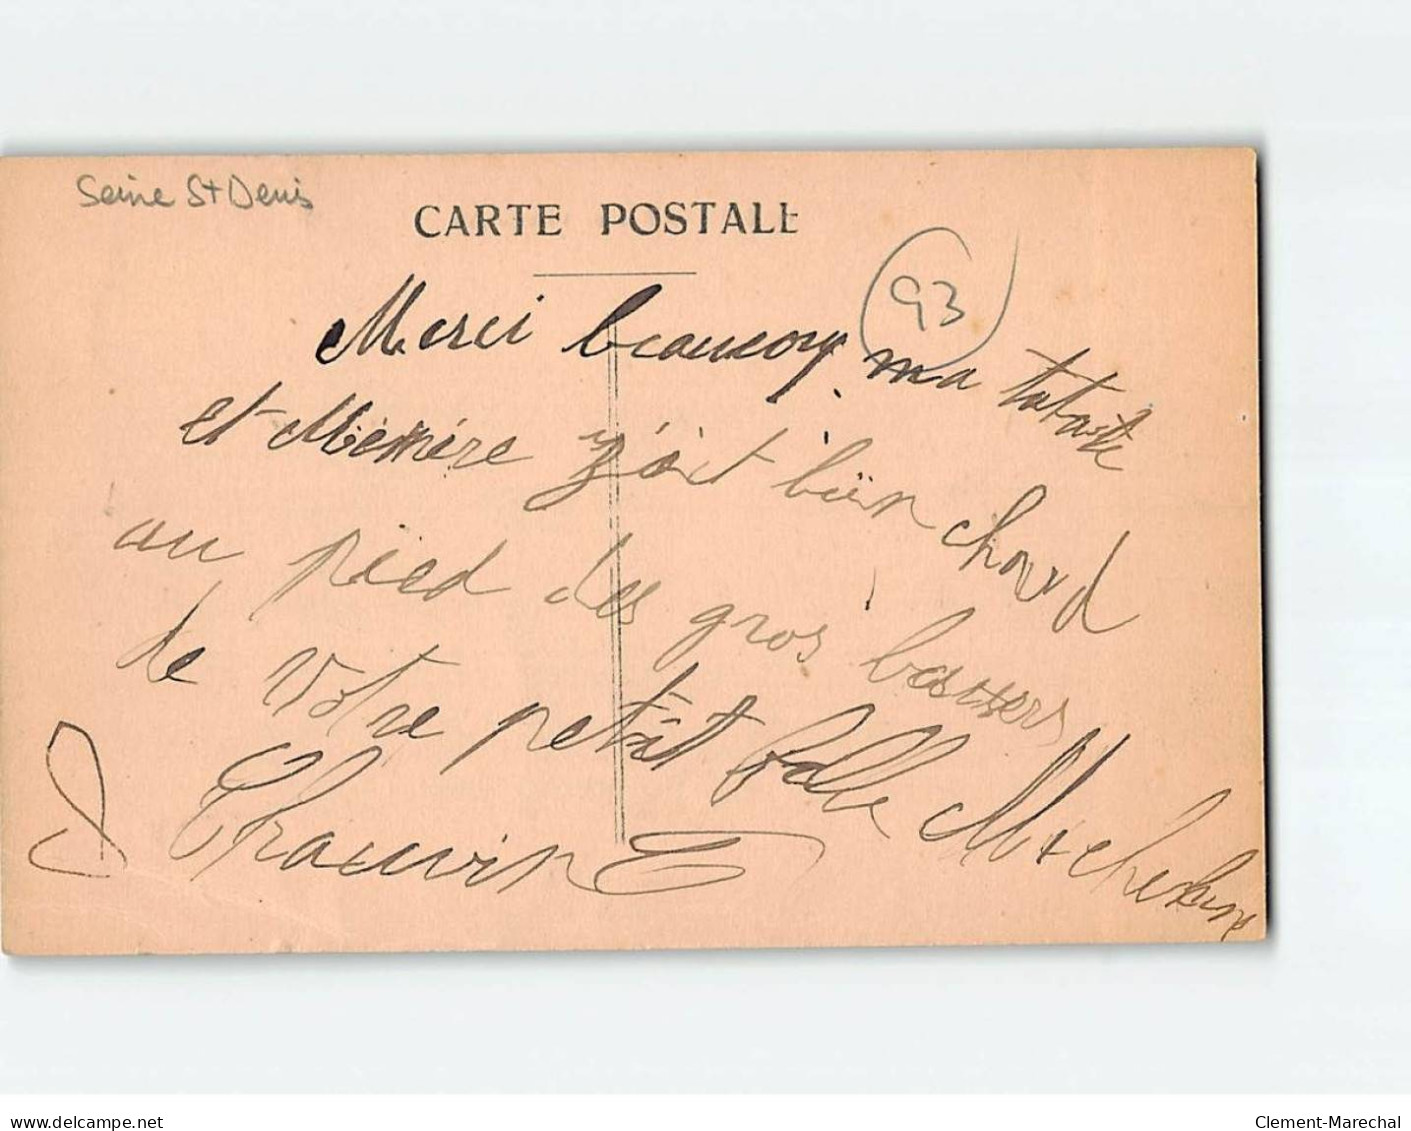 Seine St Denis
CARTE POSTALE
93
Merci beaucoup ma tatate
et Mémére j'ait bien chaud
au pied des gros bassers
de Votre petit fille
Chauvin
delcampe.net
Clement-Marechal